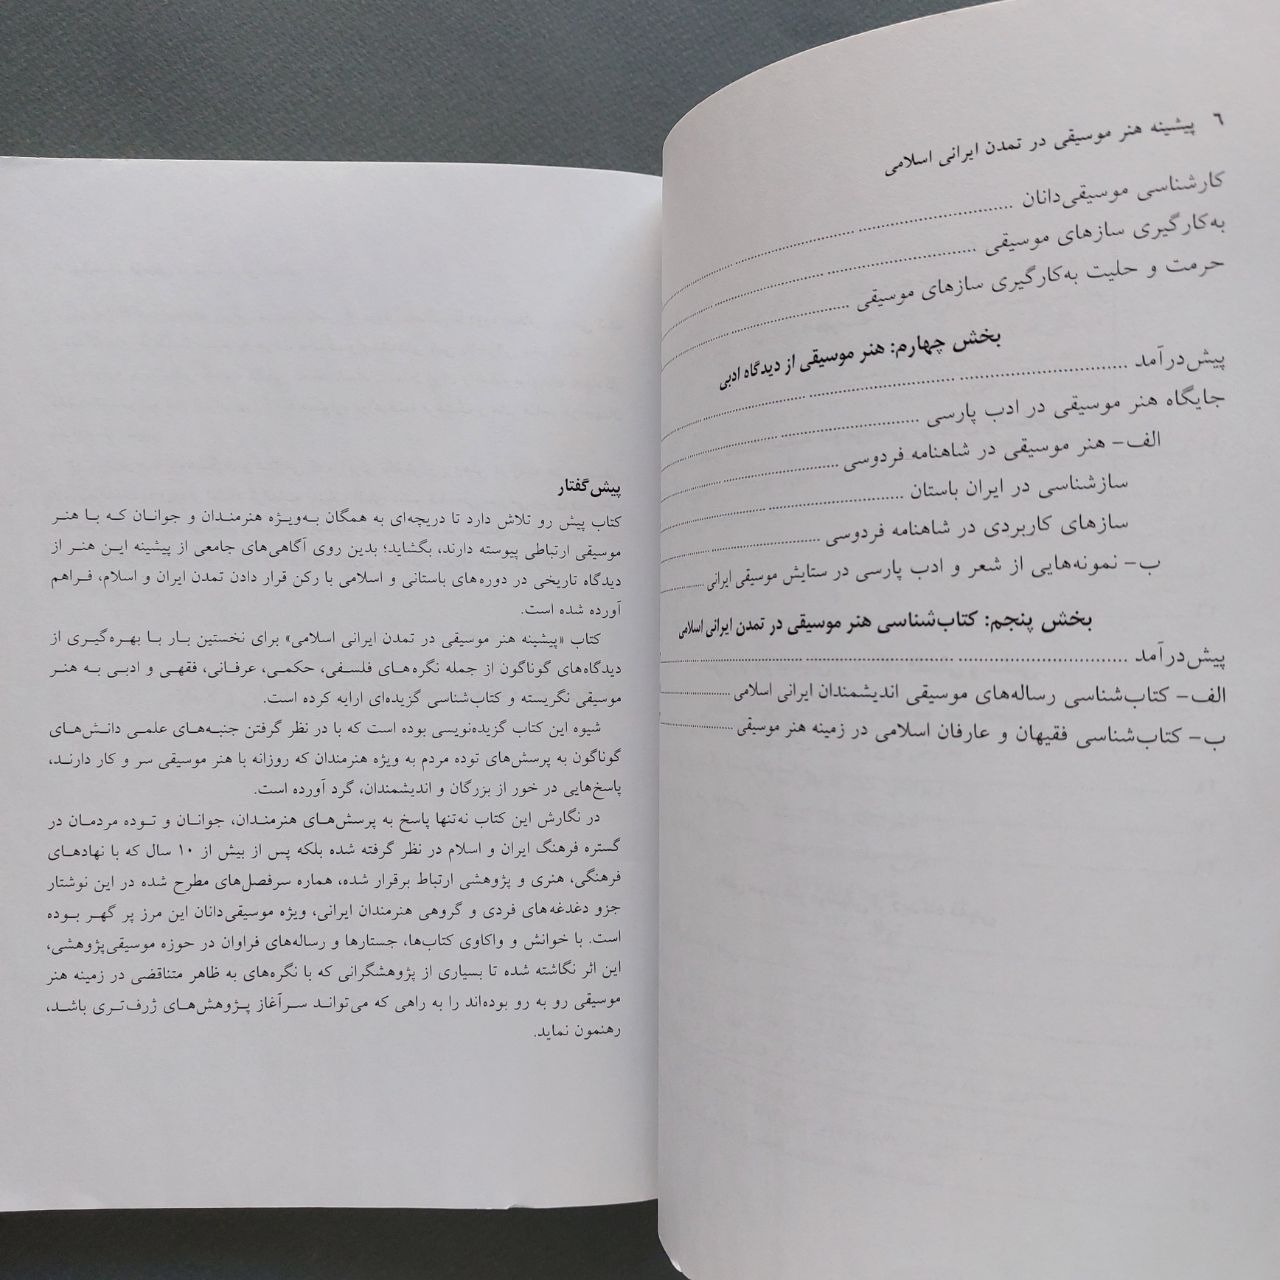 ۶ پیشینه هنر موسیقی در تمدن ایرانی اسلامی
کارشناسی موسیقی‌دانان
به‌کارگیری سازهای موسیقی
حرمت و حلیت به‌کارگیری سازهای موسیقی
بخش چهارم: هنر موسیقی از دیدگاه ادبی
پیش‌درآمد
جایگاه هنر موسیقی در ادب پارسی
الف- هنر موسیقی در شاهنامه فردوسی
سازشناسی در ایران باستان
سازهای کاربردی در شاهنامه فردوسی
ب- نمونه‌هایی از شعر و ادب پارسی در ستایش موسیقی ایرانی
بخش پنجم: کتاب‌شناسی هنر موسیقی در تمدن ایرانی اسلامی
پیش‌درآمد
الف- کتاب‌شناسی رساله‌های موسیقی اندیشمندان ایرانی اسلامی
ب- کتاب‌شناسی فقیهان و عارفان اسلامی در زمینه هنر موسیقی
پیش‌گفتار
کتاب پیش رو تلاش دارد تا دریچه‌ای به همگان به‌ویژه هنرمندان و جوانان که با هنر
موسیقی ارتباطی پیوسته دارند، بگشاید؛ بدین روی آگاهی‌های جامعی از پیشینه این هنر از
دیدگاه تاریخی در دوره‌های باستانی و اسلامی با رکن قرار دادن تمدن ایران و اسلام، فراهم
آورده شده است.
کتاب «پیشینه هنر موسیقی در تمدن ایرانی اسلامی» برای نخستین بار با بهره‌گیری از
دیدگاه‌های گوناگون از جمله نگره‌های فلسفی، حکمی، عرفانی، فقهی و ادبی به هنر
موسیقی نگریسته و کتاب‌شناسی گزیده‌ای ارایه کرده است.
شیوه این کتاب گزیده‌نویسی بوده است که با در نظر گرفتن جنبه‌های علمی دانش‌های
گوناگون به پرسش‌های توده مردم به ویژه هنرمندان که روزانه با هنر موسیقی سر و کار دارند،
پاسخ‌هایی در خور از بزرگان و اندیشمندان، گرد آورده است.
در نگارش این کتاب نه‌تنها پاسخ به پرسش‌های هنرمندان، جوانان و توده مردمان در
گستره فرهنگ ایران و اسلام در نظر گرفته شده بلکه پس از بیش از ۱۰ سال که با نهادهای
فرهنگی، هنری و پژوهشی ارتباط برقرار شده، هماره سرفصل‌های مطرح شده در این نوشتار
جزو دغدغه‌های فردی و گروهی هنرمندان ایرانی، ویژه موسیقی‌دانان این مرز پر گهر بوده
است. با خوانش و واکاوی کتاب‌ها، جستارها و رساله‌های فراوان در حوزه موسیقی‌پژوهشی،
این اثر نگاشته شده تا بسیاری از پژوهشگرانی که با نگره‌های به ظاهر متناقضی در زمینه هنر
موسیقی رو به رو بوده‌اند را به راهی که می‌تواند سرآغاز پژوهش‌های ژرف‌تری باشد،
رهنمون نماید.